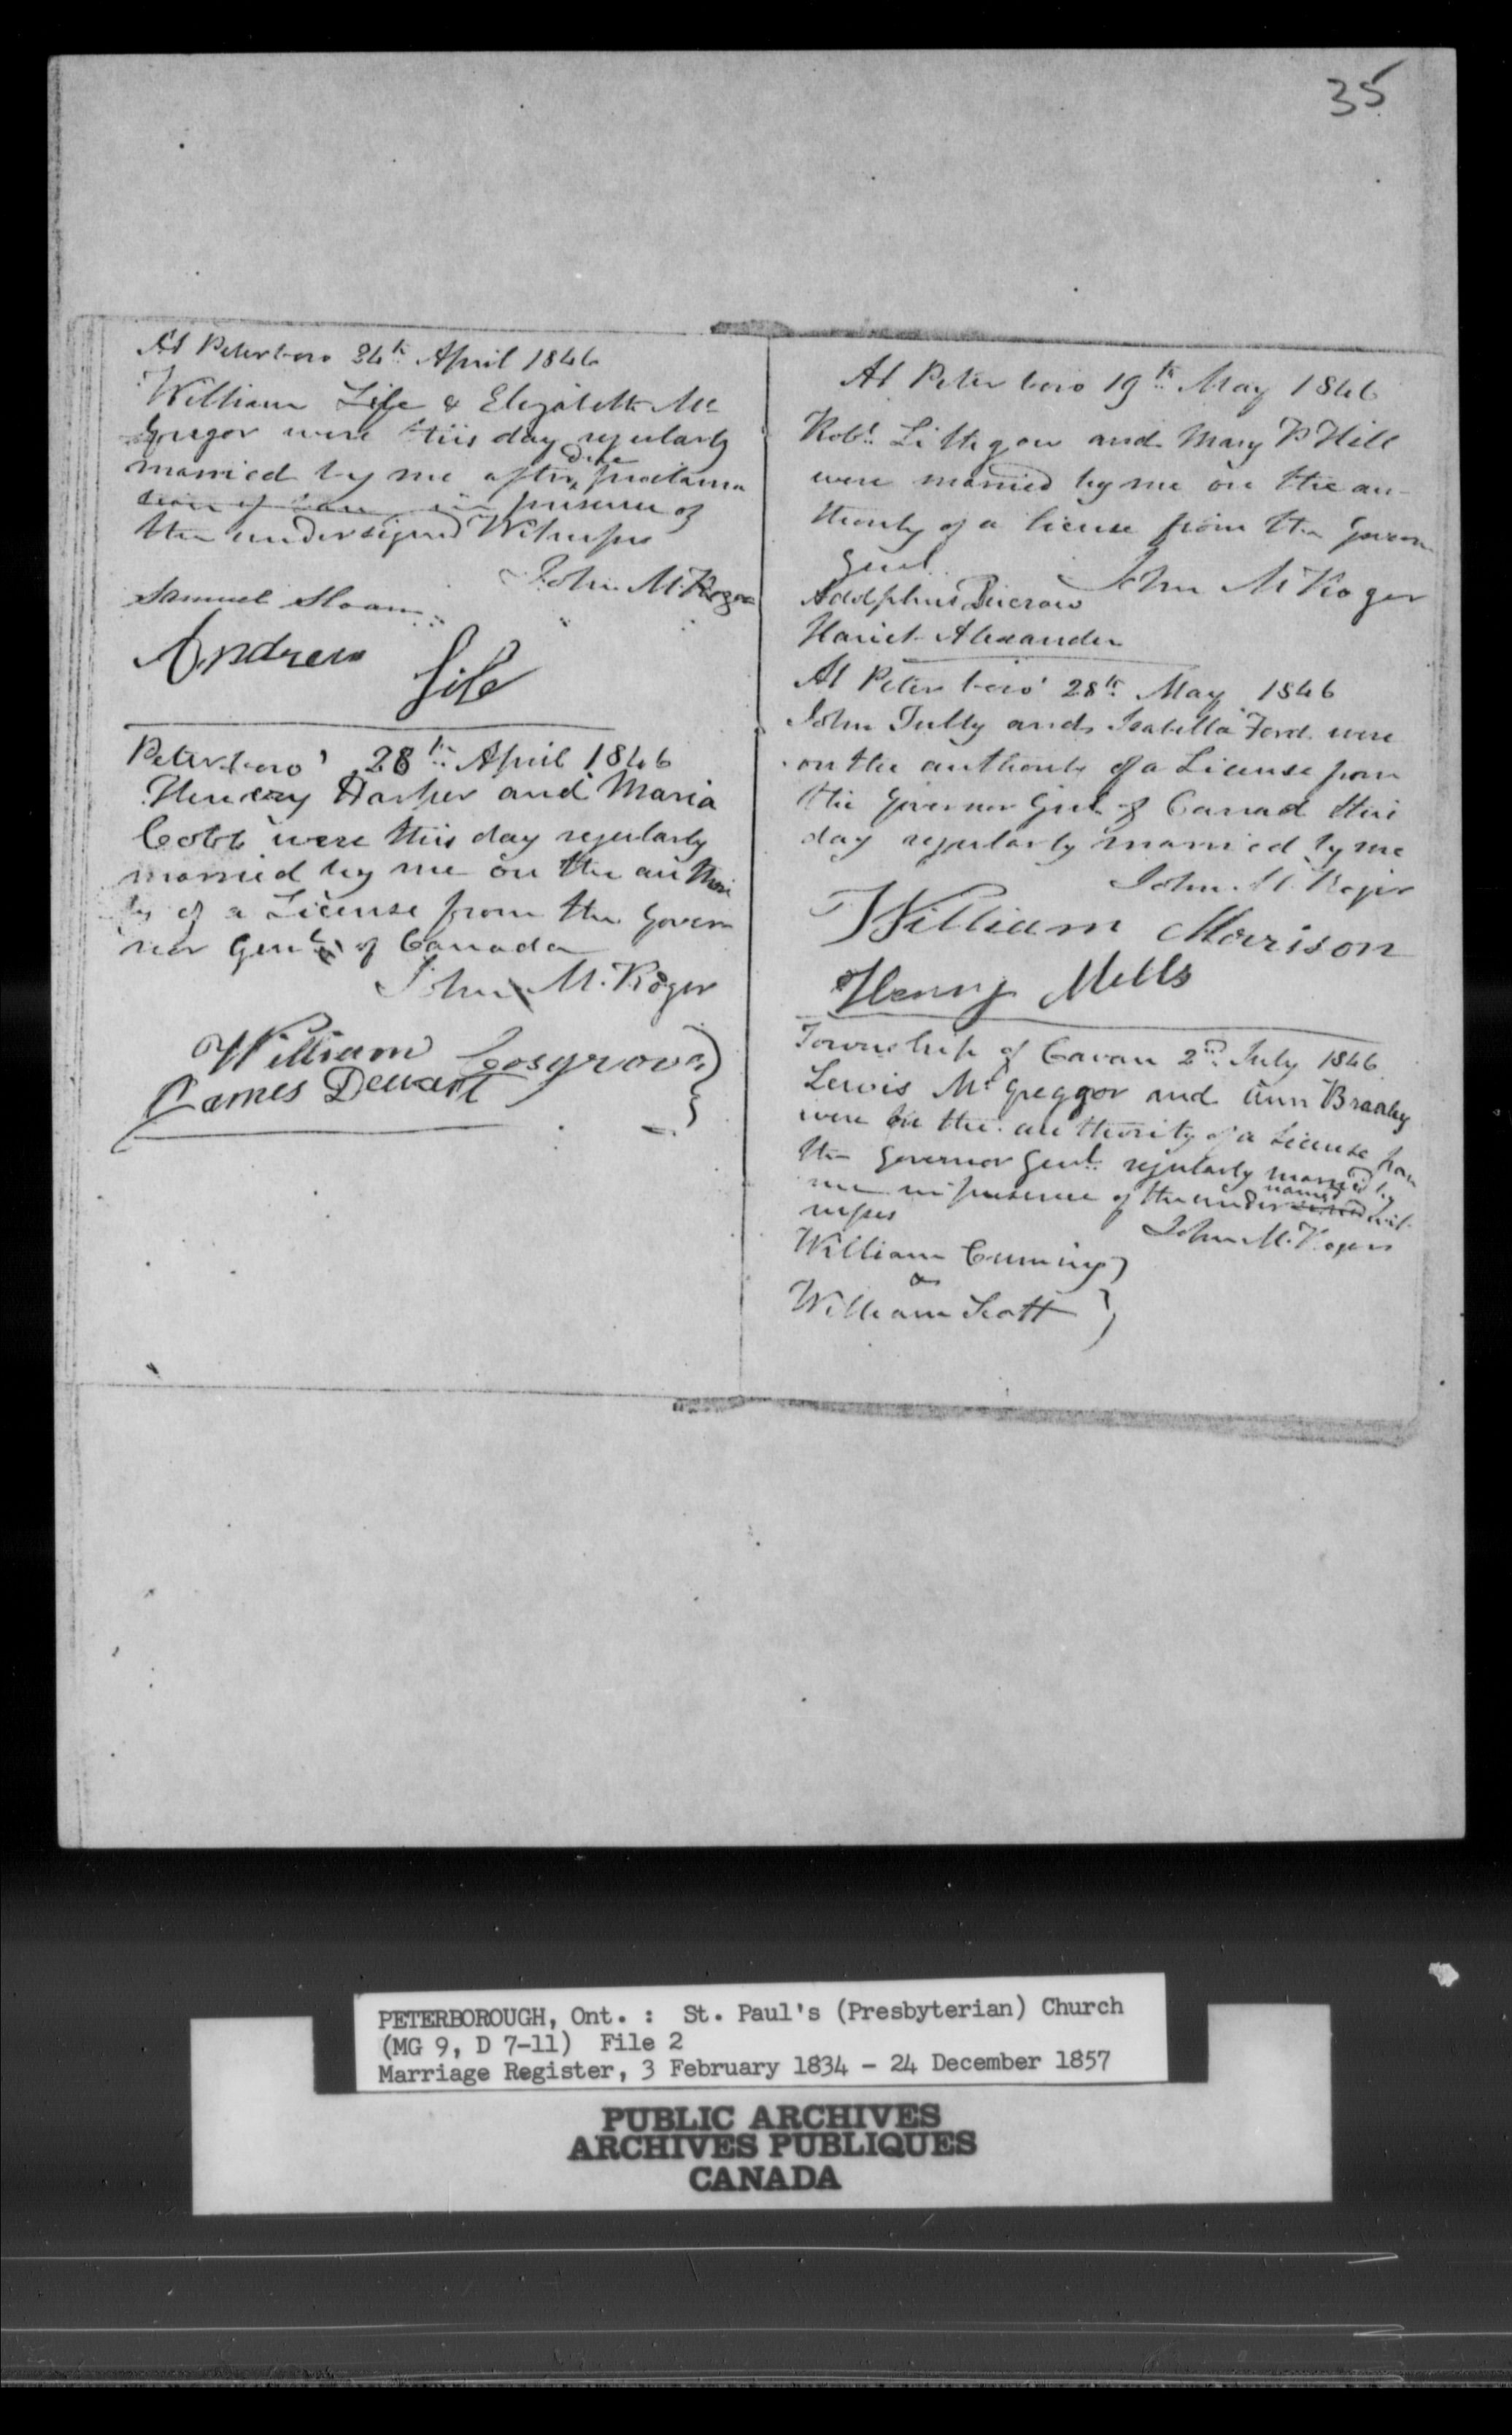 35
At Peterboro 24th April 1846
William Life & Elizabeth Mc
Gregor were this day regularly
married by me after due proclama
tion of in presence of
the undersigned Witnesses
John M. Roger
Samuel Sloan
Andrew Life
Peterboro' 28th April 1846
Hencry Harper and Maria
Cobb were this day regularly
married by me on the authori
ty of a License from the Gover
nor Genl of Canada
John M. Roger
William Cosgrove
James Dewart
At Peterboro 19th May 1846
Robt Lithgow and Mary P Hill
were married by me on the au-
thority of a license from the Govern
Genl
John M Roger
Adolphus
Hariet Alexander
At Peterboro' 28th May 1846
John Tully and Isabella Ford were
on the authority of a License from
the Governor Genl of Canad this
day regularly married by me
John M. Roger
William Morrison
Henry Mells
Township of Cavan 2nd July 1846
Lewis McGreggor and Ann
were on the authority of a License from
the Governor Genl. regularly married by
me in presence of the under named wit
nesses
John M. Roger
William Cumming
William Scott
PETERBOROUGH, Ont. : St. Paul's (Presbyterian) Church
(MG 9, D 7-11) File 2
Marriage Register, 3 February 1834 - 24 December 1857
PUBLIC ARCHIVES
ARCHIVES PUBLIQUES
CANADA